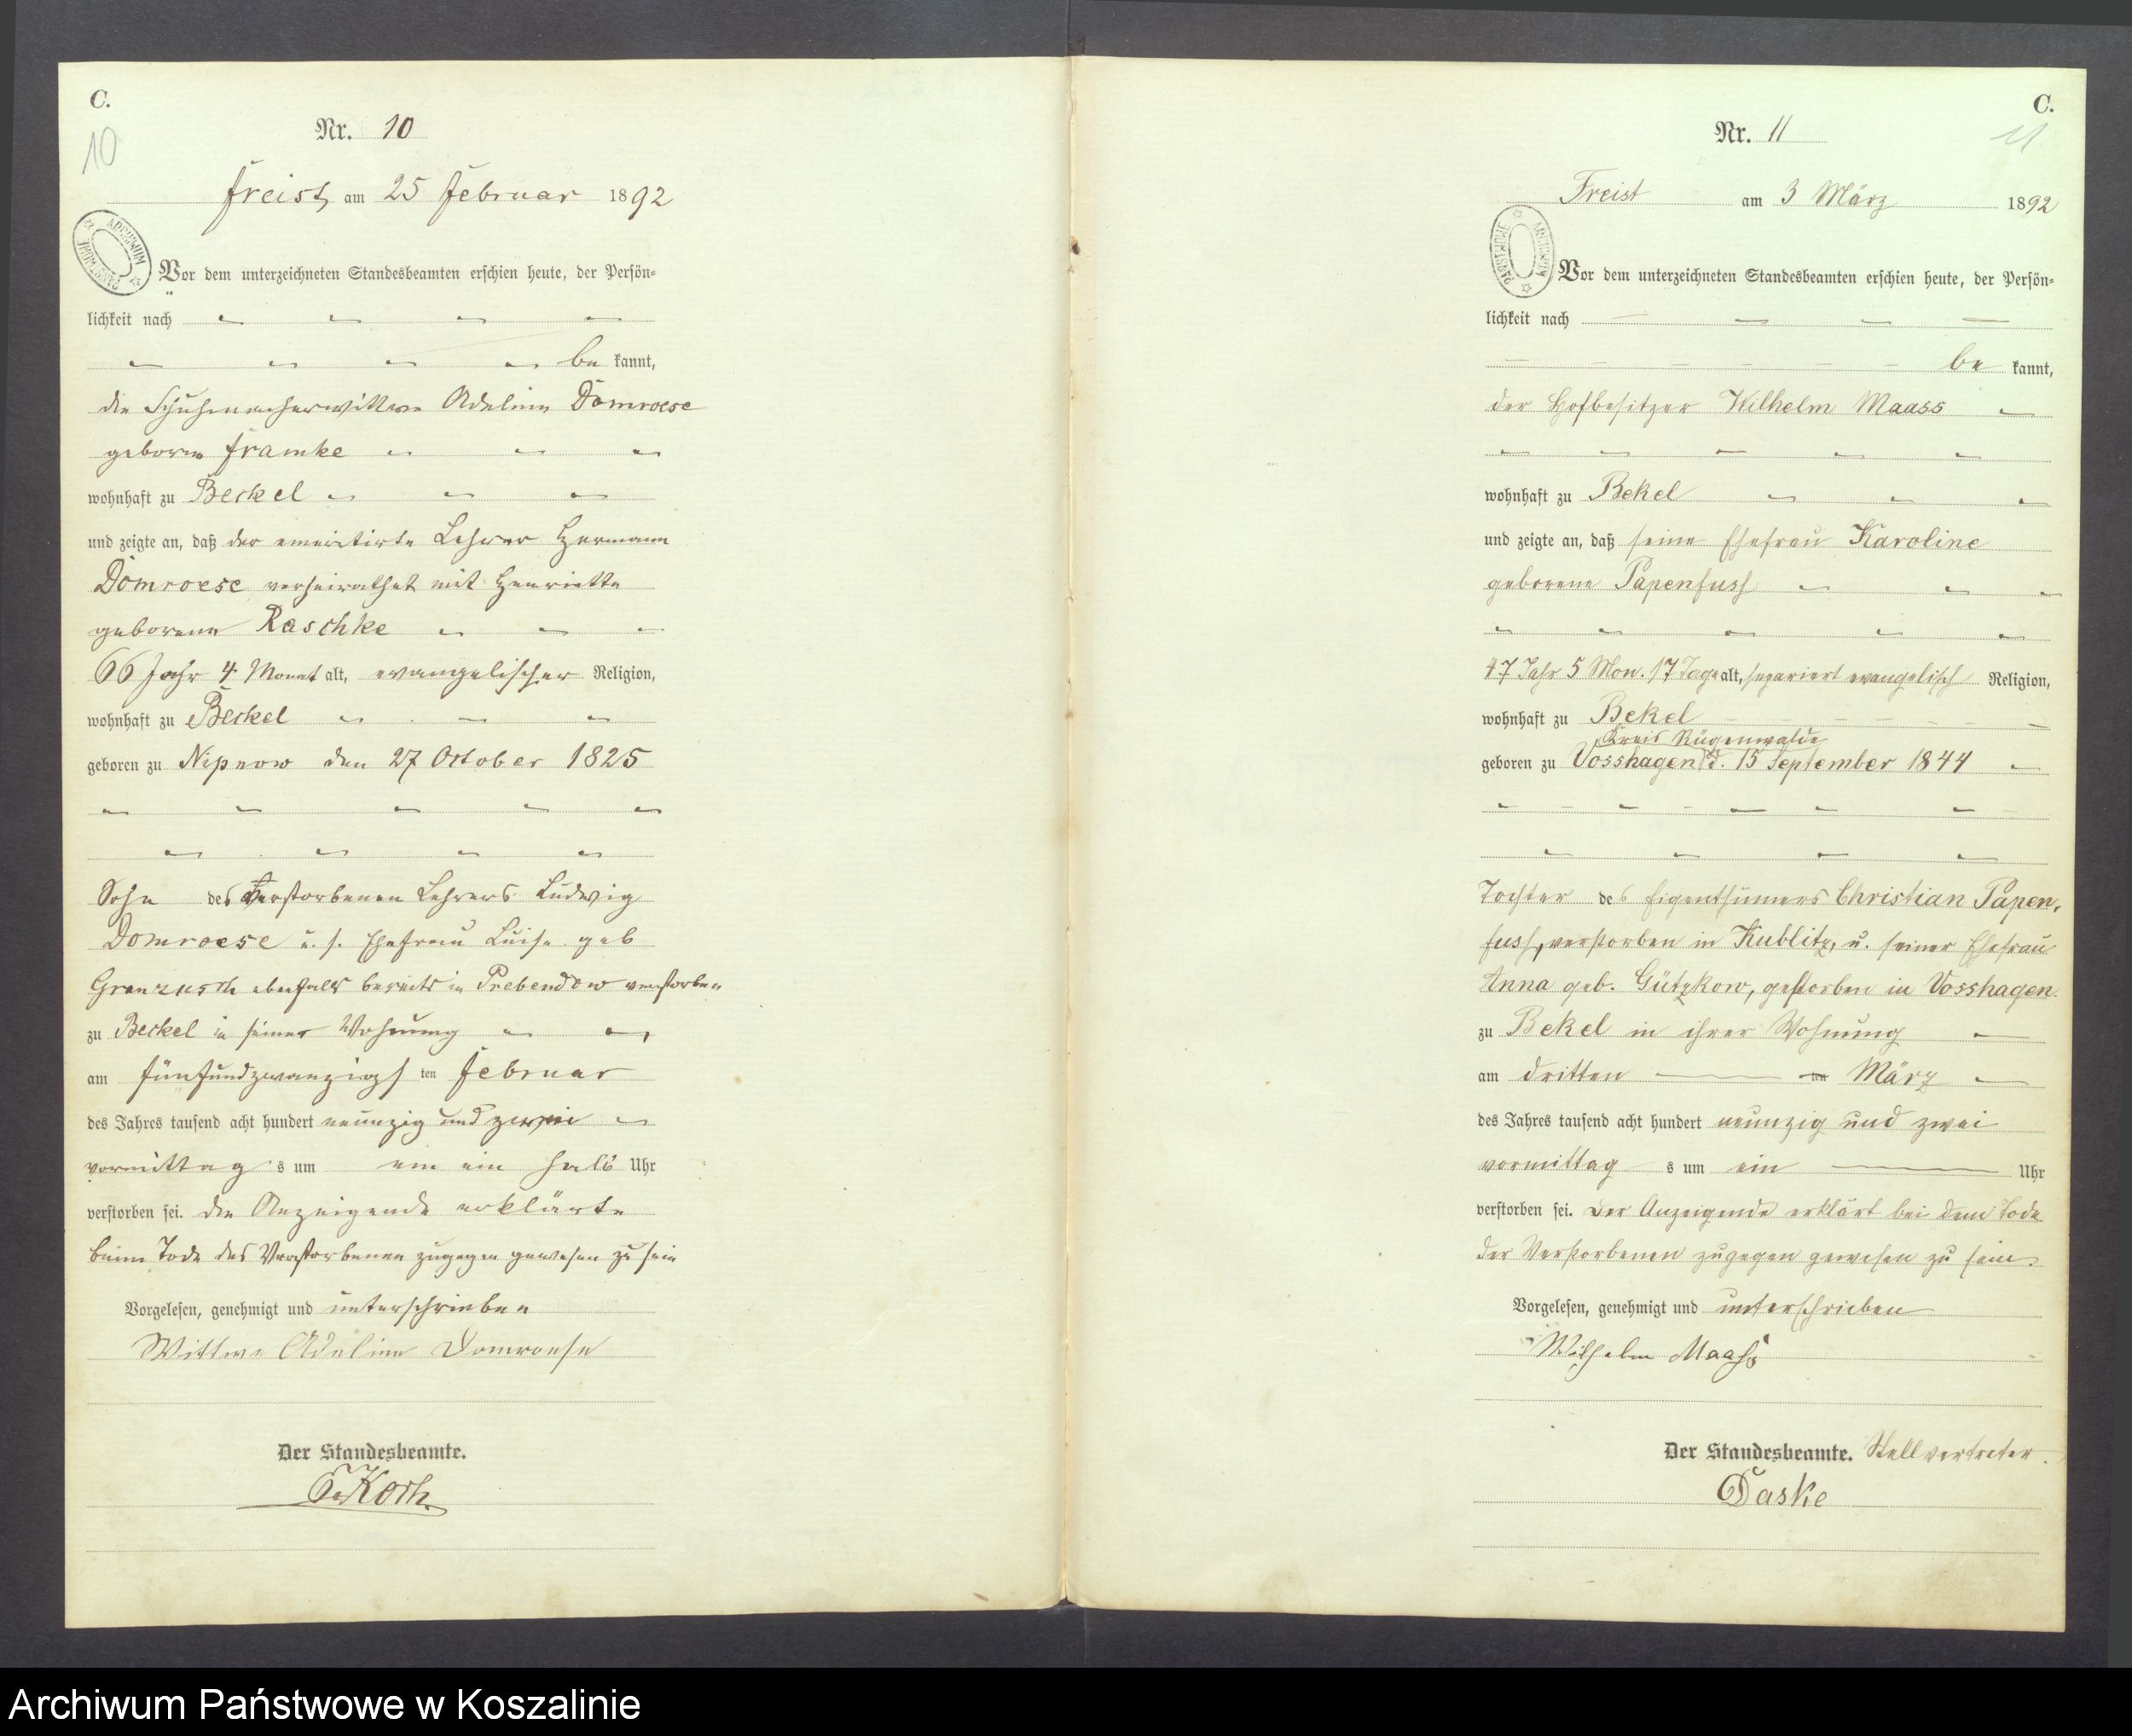 C.
10
Nr. 10
Freist, am 25 Februar 1892
ARCHIWUM PAŃSTWOWE
Vor dem unterzeichneten Standesbeamten erschien heute, der Persön-
lichkeit nach
be kannt,
die Schuhmacherwittwe Adeline Domroese
geborne Framke
wohnhaft zu Beckel
und zeigte an, daß der emeritirte Lehrer Hermann
Domroese verheirathet mit Henriette
geborene Raschke
66 Jahr 4 Monat alt, evangelischer Religion,
wohnhaft zu Beckel
geboren zu Nipnow den 27 October 1825
Sohn des verstorbenen Lehrers Ludwig
Domroese u. s. Ehefrau Luise geb
ebenfalls bereits in Prebendow verstorben
zu Beckel in seiner Wohnung
am fünfundzwanzigs ten Februar
des Jahres tausend acht hundert neunzig und zwei
vormittag s um ein halb Uhr
verstorben sei. die Anzeigende erklärte
beim Tode des Verstorbenen zugegen gewesen zu sein
Vorgelesen, genehmigt und unterschrieben
Wittwe Adeline Domroese
Der Standesbeamte.
Koch
C.
11
Nr. 11
Freist am 3 März 1892
ARCHIWUM PAŃSTWOWE
Vor dem unterzeichneten Standesbeamten erschien heute, der Persön-
lichkeit nach
be kannt,
der Hofbesitzer Wilhelm Maass
wohnhaft zu Bekel
und zeigte an, daß seine Ehefrau Karoline
geborene Papenfuss
47 Jahr 5 Mon. 17 Tage alt, separiert evangelisch Religion,
wohnhaft zu Bekel
Kreis Rügenwalde
geboren zu Vosshagen d. 15 September 1844
Tochter des Eigenthümers Christian Papen-
fuss, verstorben in Kublitz, u. seiner Ehefrau
Anna geb. Gützkow, gestorben in Vosshagen.
zu Bekel in ihrer Wohnung
am dritten ten März
des Jahres tausend acht hundert neunzig und zwei
vormittag s um ein Uhr
verstorben sei. Der Anzeigende erklärt bei dem Tode
der Verstorbenen zugegen gewesen zu sein.
Vorgelesen, genehmigt und unterschrieben
Wilhelm Maaß
Der Standesbeamte. Stellvertreter.
Daske
Archiwum Państwowe w Koszalinie